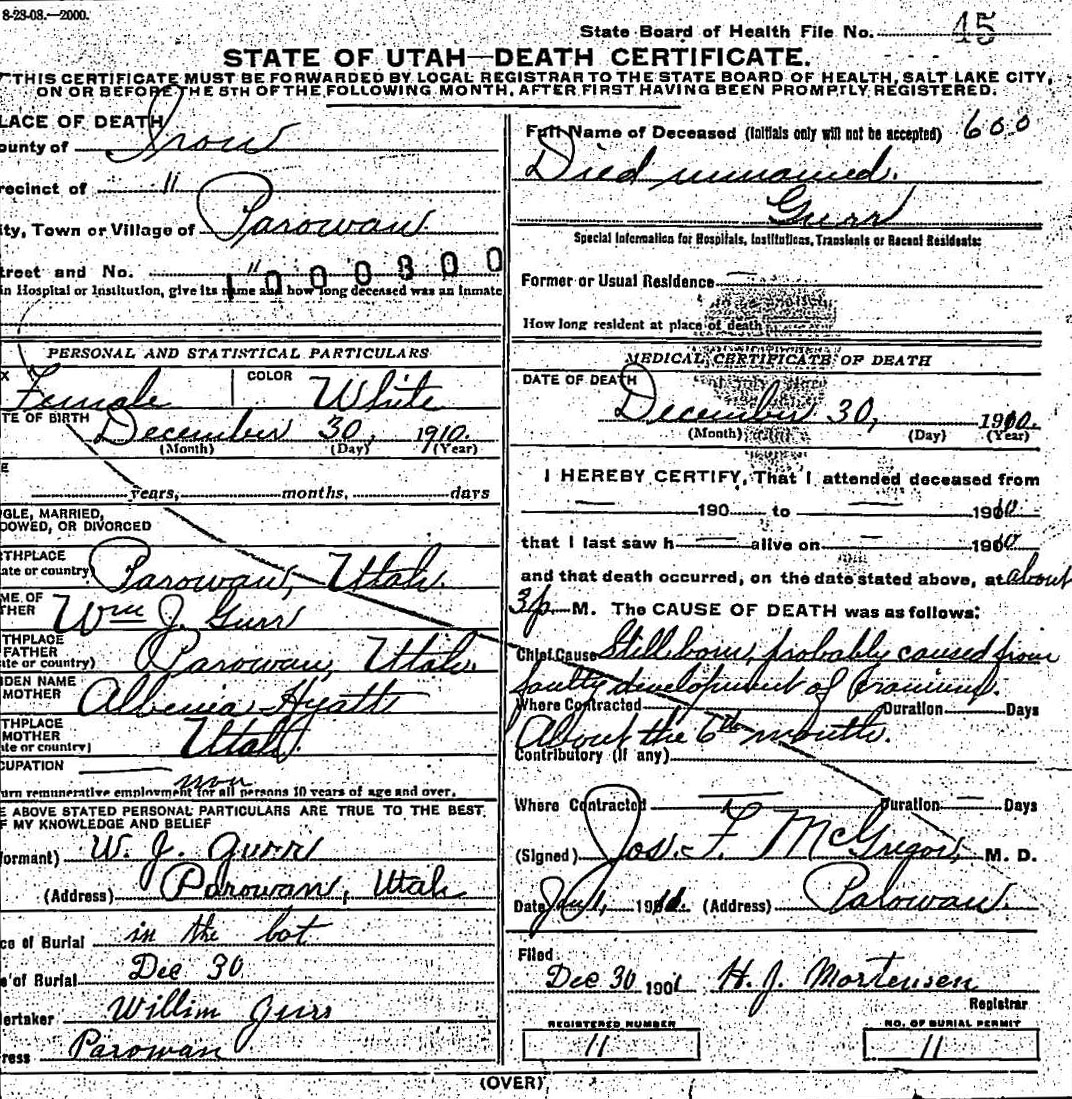 8-23-08.—2000.
State Board of Health File No. 15
STATE OF UTAH—DEATH CERTIFICATE.
THIS CERTIFICATE MUST BE FORWARDED BY LOCAL REGISTRAR TO THE STATE BOARD OF HEALTH, SALT LAKE CITY,
ON OR BEFORE THE 5TH OF THE FOLLOWING MONTH, AFTER FIRST HAVING BEEN PROMPTLY REGISTERED.
LACE OF DEATH
ounty of Iron
recinct of "
ity, Town or Village of Parowan
treet and No. "
1000300
in Hospital or Institution, give its name and how long deceased was an inmate
PERSONAL AND STATISTICAL PARTICULARS
X Female COLOR White
TE OF BIRTH
December 30, 1910.
(Month) (Day) (Year)
E
years, months, days
GLE, MARRIED,
DOWED, OR DIVORCED
THPLACE
ate or country) Parowan, Utah
ME OF
THER Wm J. Gurr
THPLACE
FATHER
ate or country) Parowan, Utah.
IDEN NAME
MOTHER Albenia Hyatt
THPLACE
MOTHER
ate or country) Utah.
CUPATION
non
urn remunerative employment for all persons 10 years of age and over.
E ABOVE STATED PERSONAL PARTICULARS ARE TRUE TO THE BEST
F MY KNOWLEDGE AND BELIEF
formant) W. J. Gurr
(Address) Parowan, Utah
ce of Burial in the lot
e of Burial Dec 30
ertaker Willim Gurr
ress Parowan
Full Name of Deceased (Initials only will not be accepted) 600
Died unnamed.
Gurr
Special Information for Hospitals, Institutions, Transients or Recent Residents:
Former or Usual Residence —
How long resident at place of death
MEDICAL CERTIFICATE OF DEATH
DATE OF DEATH
December 30, 1910.
(Month) (Day) (Year)
I HEREBY CERTIFY, That I attended deceased from
— 190 to — 1910
that I last saw h — alive on — 1910
and that death occurred, on the date stated above, at about
3 p. M. The CAUSE OF DEATH was as follows:
Chief Cause Stillborn, probably caused from
faulty development of Cranium.
Where Contracted Duration Days
About the 6th month.
Contributory (if any)
Where Contracted — Duration — Days
(Signed) Jos. F. McGregor, M. D.
Date Jan 1, 1911. (Address) Parowan.
Filed
Dec 30 1901 H. J. Mortensen
Registrar
REGISTERED NUMBER
11
NO. OF BURIAL PERMIT
11
(OVER)